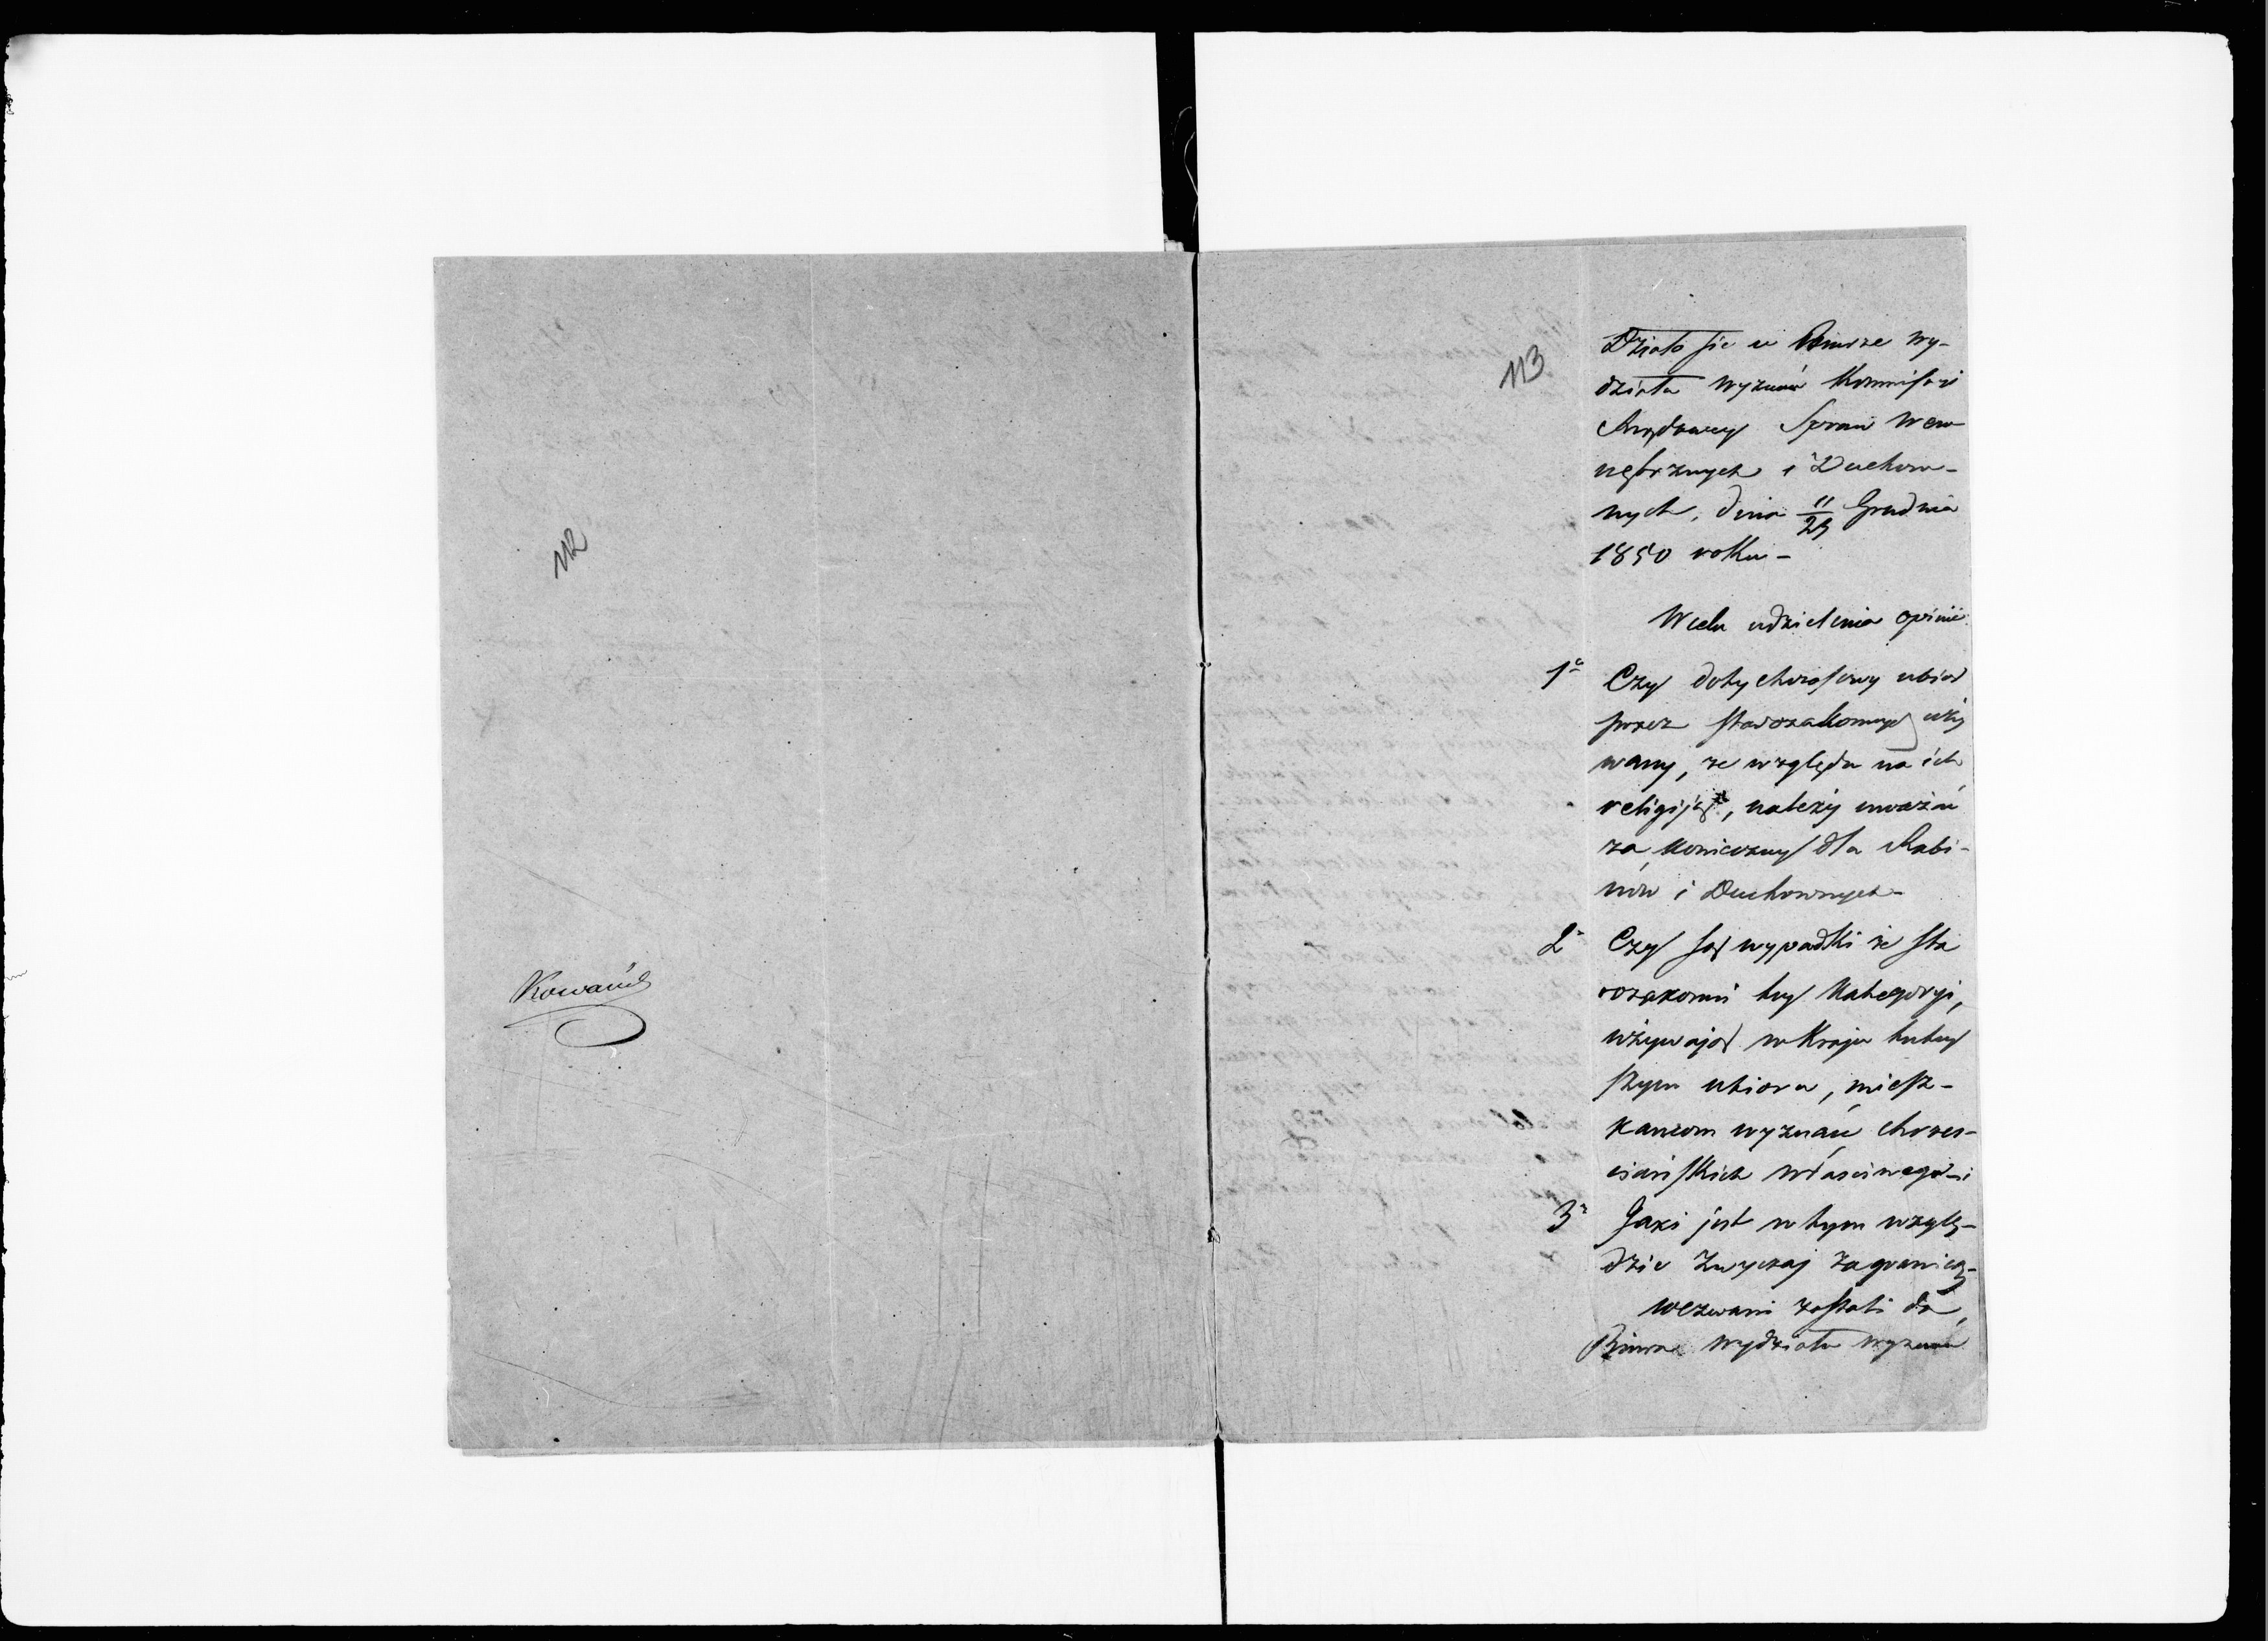 112
Kowański
113
Działo się w Biurze Wy-
działu Wyznań Kommissyi
Rządowey Spraw Wew-
nętrznych i Duchow-
nych, dnia 11/23 Grudnia
1850 roku -
W celu udzielenia opinii
1o Czy dotychczasowy ubior
przez starozakonnych uży
wany, ze względu na ich
religiją, należy uważać
za konieczny dla Rabi-
nów i Duchownych -
2o Czy są wypadki że sta
rozakonni tey kategoryi,
używają w kraju tutey
szym ubioru, miesz-
kańcom wyznań chrześ-
ciańskich właściwego - i
3o Jaki jest w tym wzglę-
dzie zwyczaj zagranicą -
wezwani zostali do
Biura Wydziału Wyznań